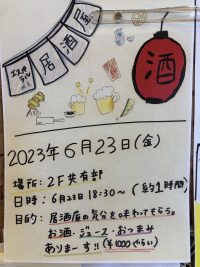 居酒屋
酒
2023年6月23日(金)
場所：2F共有部
日時：6月23日 18:30～(約1時間)
目的：居酒屋の気分を味わってもらう。
お酒・ジュース・おつまみ
ありまーす!!(¥1000ぐらい)